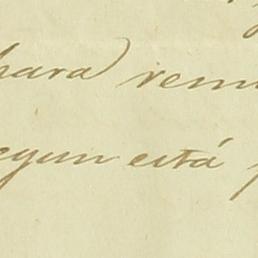 para remi
egun está